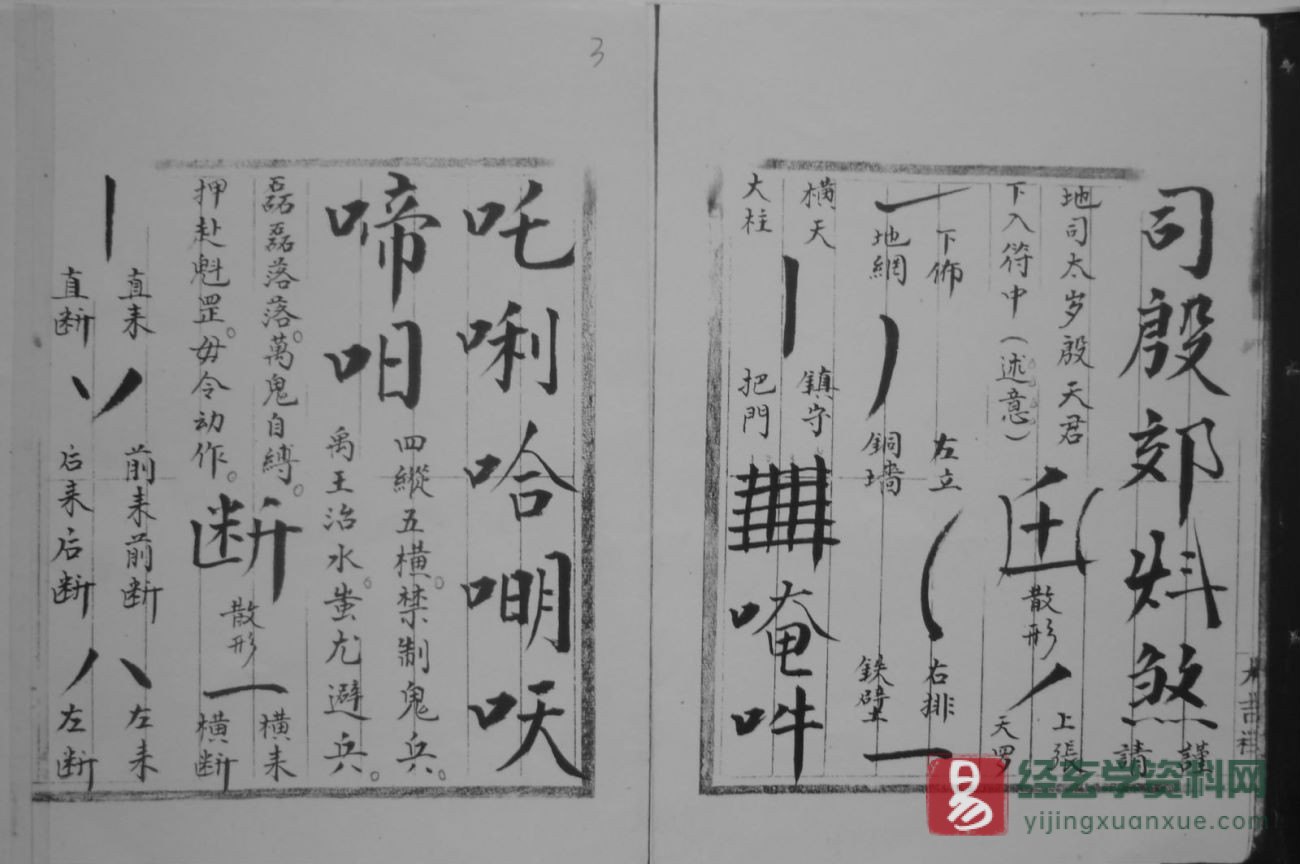 司殷郊㪷煞
謹請
地司太岁殷天君
下入符中(述意)
散形
丿
上張
天罗
下佈
地網
左立
銅墻
右排
鉄壁
一
橫天
大柱
丨
鎮守
把門
唵吽
吒唎哈𠹃𠯋
啼呾
四縱五橫。禁制鬼兵。
禹王治水。蚩尤避兵。
磊磊落落。萬鬼自縛。
押赴魁罡。毋令动作。
断
散形
一
橫来
橫断
丨
直来
直断
前来前断
后来后断
八
左来
左断
3
易
经玄学资料网
yijingxuanxue.com